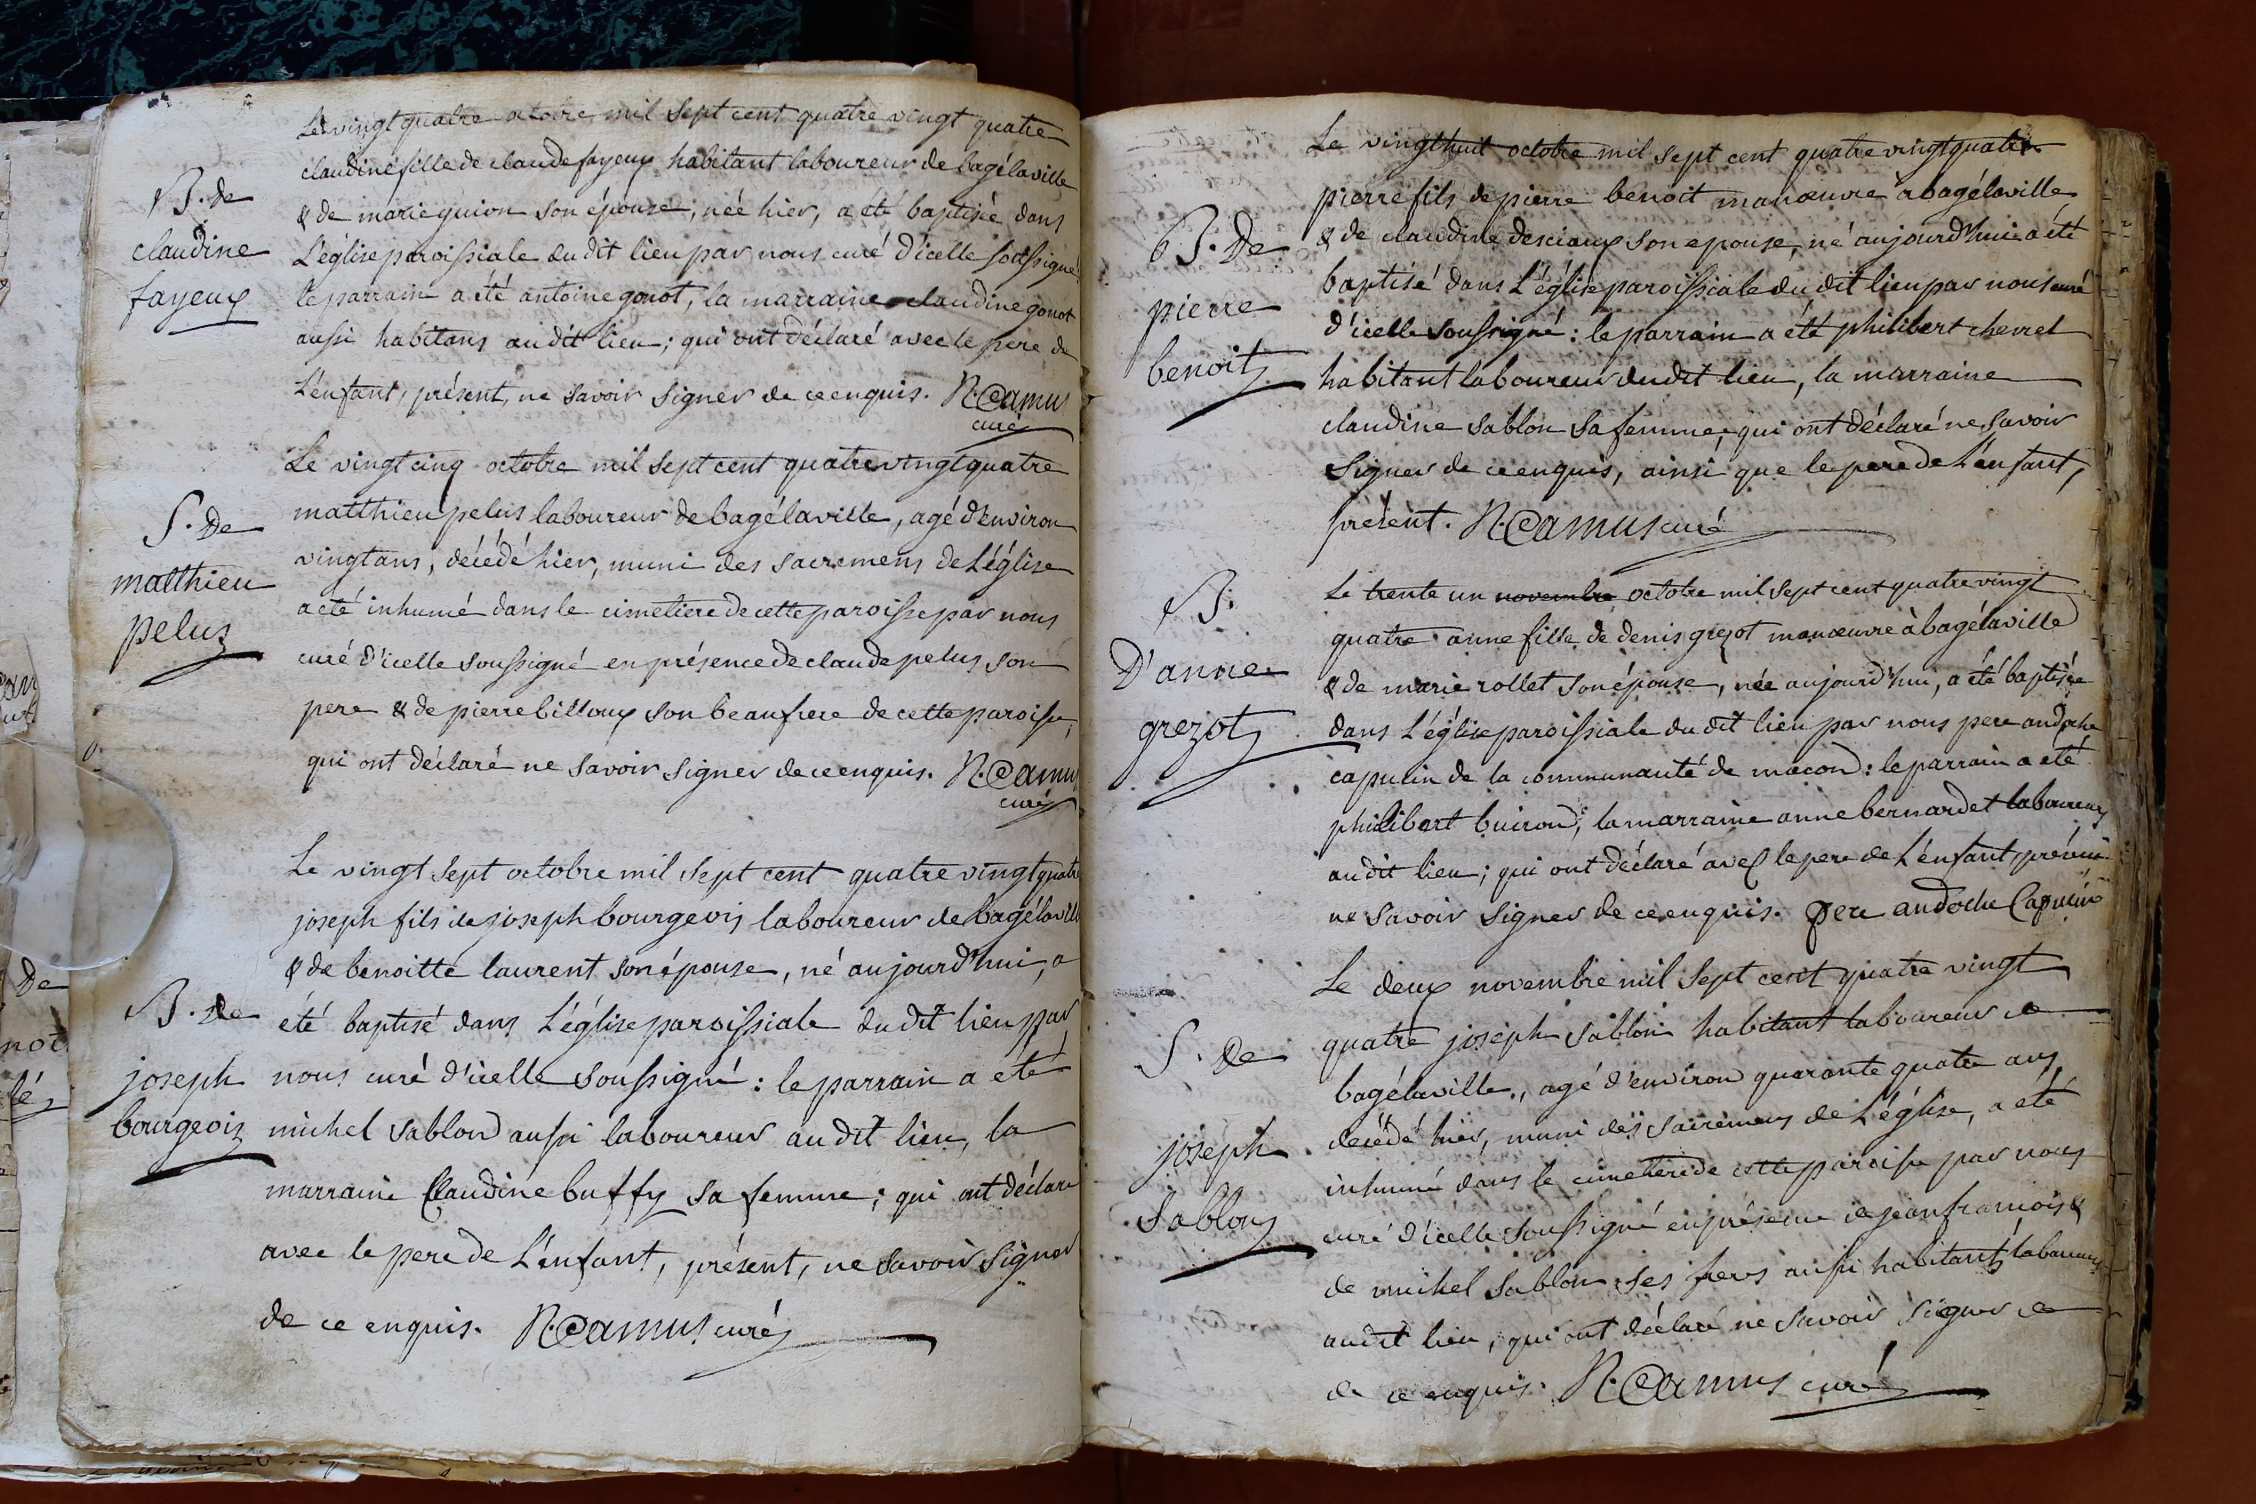 Le vingt quatre octobre mil Sept cent quatre vingt quatre
claudine fille de claude fayeux habitant laboureur de bagélaville
B. de
& de marie guion son épouse, née hier, a été baptisée dans
claudine
L'église paroissiale du dit lieu par nous curé d'icelle soussigné
fayeux
le parrain a été antoine gonot, la marraine claudine gonot
aussi habitans au dit lieu; qui ont déclaré avec le pere de
L'enfant, présent, ne savoir signer de ce enquis. N. Camus
curé
Le vingt cinq octobre mil sept cent quatre vingt quatre
S. de
matthieu pelus laboureur de bagélaville, agé d'environ
matthieu
vingt ans, décédé hier, muni des sacremens de L'église
pelus
a été inhumé dans le cimetiere de cette paroisse par nous
curé d'icelle soussigné en présence de claude pelus son
pere & de pierre billoux son beaufrere de cette paroisse,
qui ont déclaré ne savoir signer de ce enquis. N. Camus
curé
Le vingt sept octobre mil sept cent quatre vingt quatre
joseph fils de joseph bourgeois laboureur de bagélaville
& de benoitte laurent son épouse, né aujourd'hui, a
B. de
été baptisé dans L'église paroissiale du dit lieu par
joseph
nous curé d'icelle soussigné : le parrain a été
bourgeois
michel sablon aussi laboureur au dit lieu, la
marraine Claudine buffy sa femme; qui ont déclaré
avec le pere de L'enfant, présent, ne savoir signer
de ce enquis. N. Camus curé
De
not
lé
Le vingt huit octobre mil sept cent quatre vingt quatre
pierre fils de pierre benoit manœuvre a bagélaville
B. De
& de claudine desciaux son epouse, né aujourd'hui a été
pierre
baptisé dans L'église paroissiale du dit lieu par nous curé
benoit
d'icelle soussigné : le parrain a été philibert chervet
habitant laboureur du dit lieu, la marraine
claudine sablon sa femme, qui ont déclaré ne savoir
signer de ce enquis, ainsi que le pere de L'enfant,
présent. N. Camus curé
B.
Le trente un novembre octobre mil sept cent quatre vingt
D'anne
quatre anne fille de denis grezot manœuvre à bagélaville
grezot
& de marie rollet son épouse, née aujourd'hui, a été baptisée
dans L'église paroissiale du dit lieu par nous pere andoche
capucin de la communauté de macon : le parrain a été
philibert buiron, la marraine anne bernardet laboureurs
au dit lieu; qui ont déclaré avec le pere de L'enfant, présent
ne savoir signer de ce enquis. pere andoche Capucin
Le deux novembre mil sept cent quatre vingt
S. de
quatre joseph sablon habitant laboureur de
bagélaville, agé d'environ quarante quatre ans
joseph
décédé hier, muni des sacremens de L'église, a été
Sablon
inhumé dans le cimetiere de cette paroisse par nous
curé d'icelle soussigné en présence de jean francois &
de michel Sablon ses freres aussi habitants laboureurs
au dit lieu, qui ont déclaré ne savoir signer de
de ce enquis. N. Camus curé